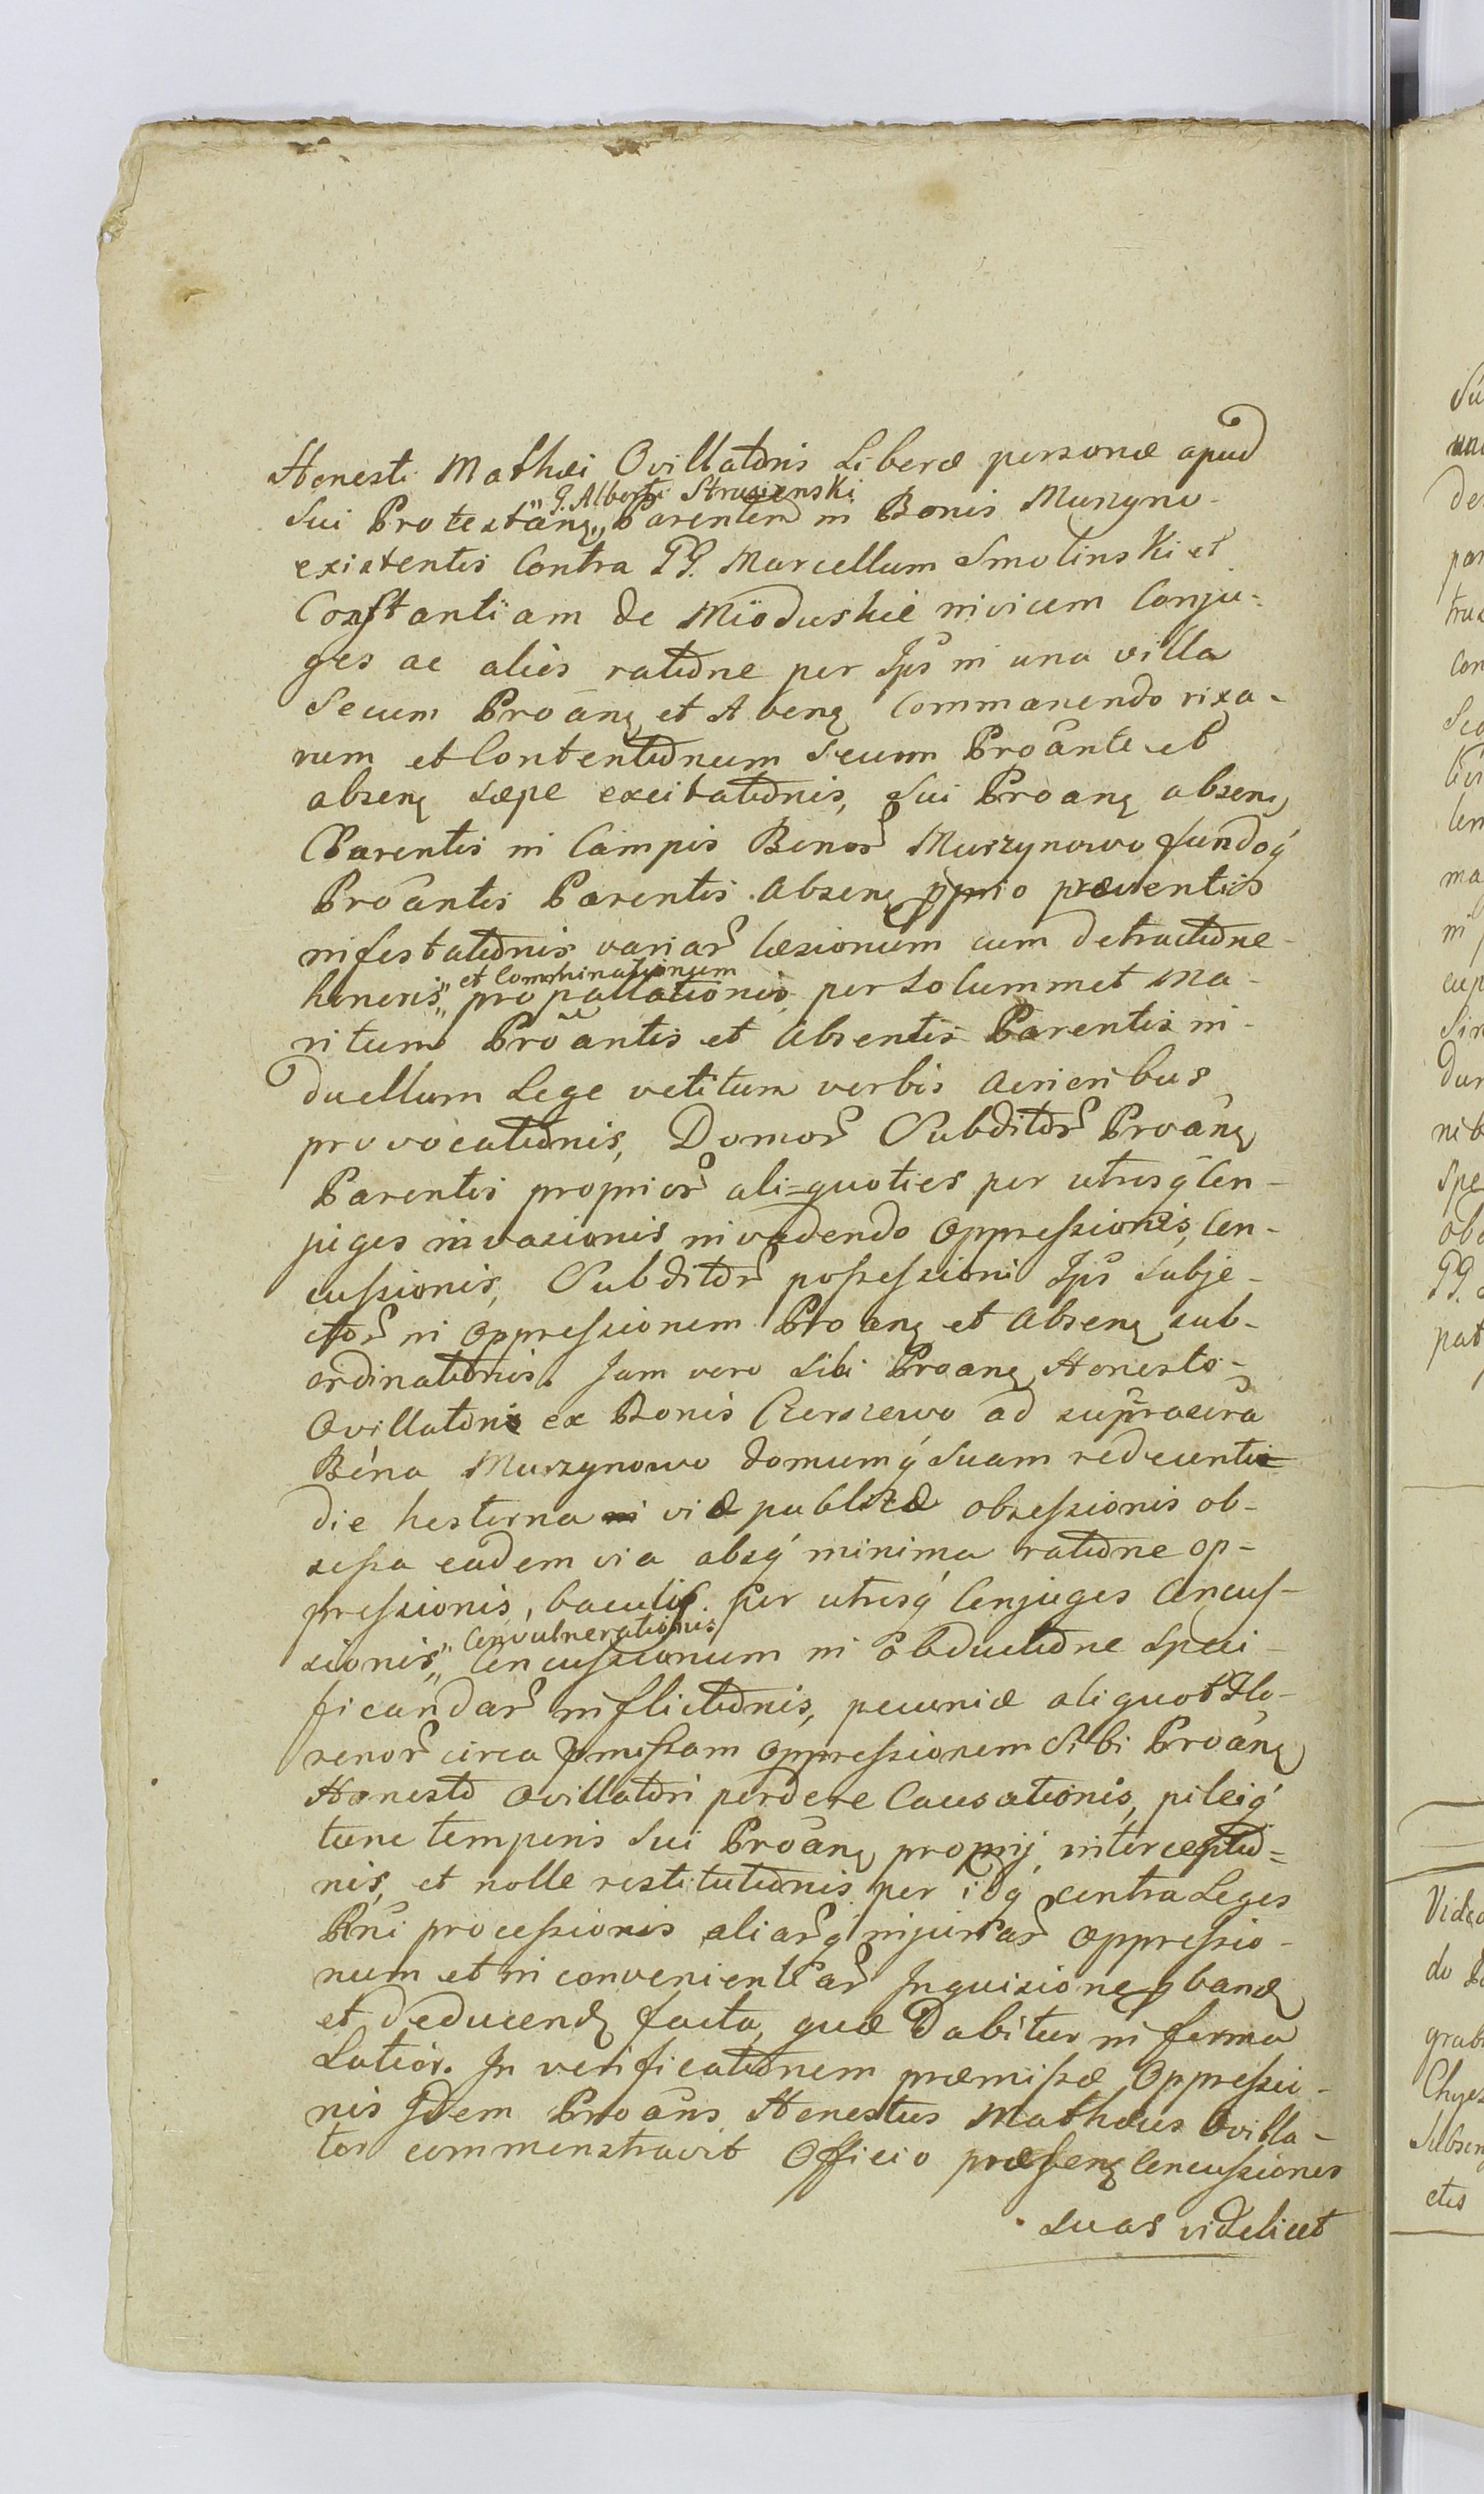 Honesti Mathæi Ovillatoris Liberæ personæ apud
„G. Alberti Strusienski
sui Protestãnẽ„ Parentem in Bonis Murzyno-
existentis Contra GG. Marcellum Smolinski et
Constantiam de Mioduskie invicem Conju-
ges ac aliis ratione per Ips in una villa
secum Proãnẽ et Abseñ Commanendo rixa-
rum et Contentionum secum Proãnte et
absenẽ sæpe excitationis, sui Proanẽ absenẽ
Parentis in Campis Bonor Murzynowo fundoq́
Proãntis Parentis absenẽ pprio prævientis
infestationis variar læsionum cum detractione
„et Comminationum
honoris„ propallationis per solummet Ma-
ritum Proãntis et Absentis Parentis in
duellum Lege vetitum verbis acrioribus
provocationis, Domor Subditor Proãnẽ
Parentis proprior ali=quoties per utrosq́ Con-
juges invasionis, invadendo oppressionis, con-
cussionis, Subditor possessioni Ips subje-
ctor in oppressionem Proanẽ et Absenẽ sub-
ordinationis. Jam vero sibi Proanẽ Honesto
Ovillatori ex Bonis Czerszewo ad suprascra
Bona Murzynowo domumq́ suam redeunti
die hesterna viæ publicæ obsessionis ob-
sessa eadem via absq́ minima ratione op-
pressionis, baculis per utrosq́ Conjuges Concus-
„Convulnerationis
sionis„ Concussionum in obductione speci-
ficandar inflictionis, pecuniæ aliquot Flo-
renor circa pmissam oppressionem Sibi Proãnẽ
Honesto Ovillatori perdere Causationis, pileiq́
tunc temporis sui Proanẽ proprij interceptio=
nis, et nolle restitutionis per idq́ contra Leges
Rni processionis aliarq́ injuriar oppressio-
num et inconvenientiar Inquisitione pband
et deducend facta, quæ dabitur in forma
Latior. In verificationem præmissæ Oppressio-
nis Idem Proãns Honestus Mathæus Ovilla-
tor commonstravit Officio præsenẽ Concussiones
suas videlicet